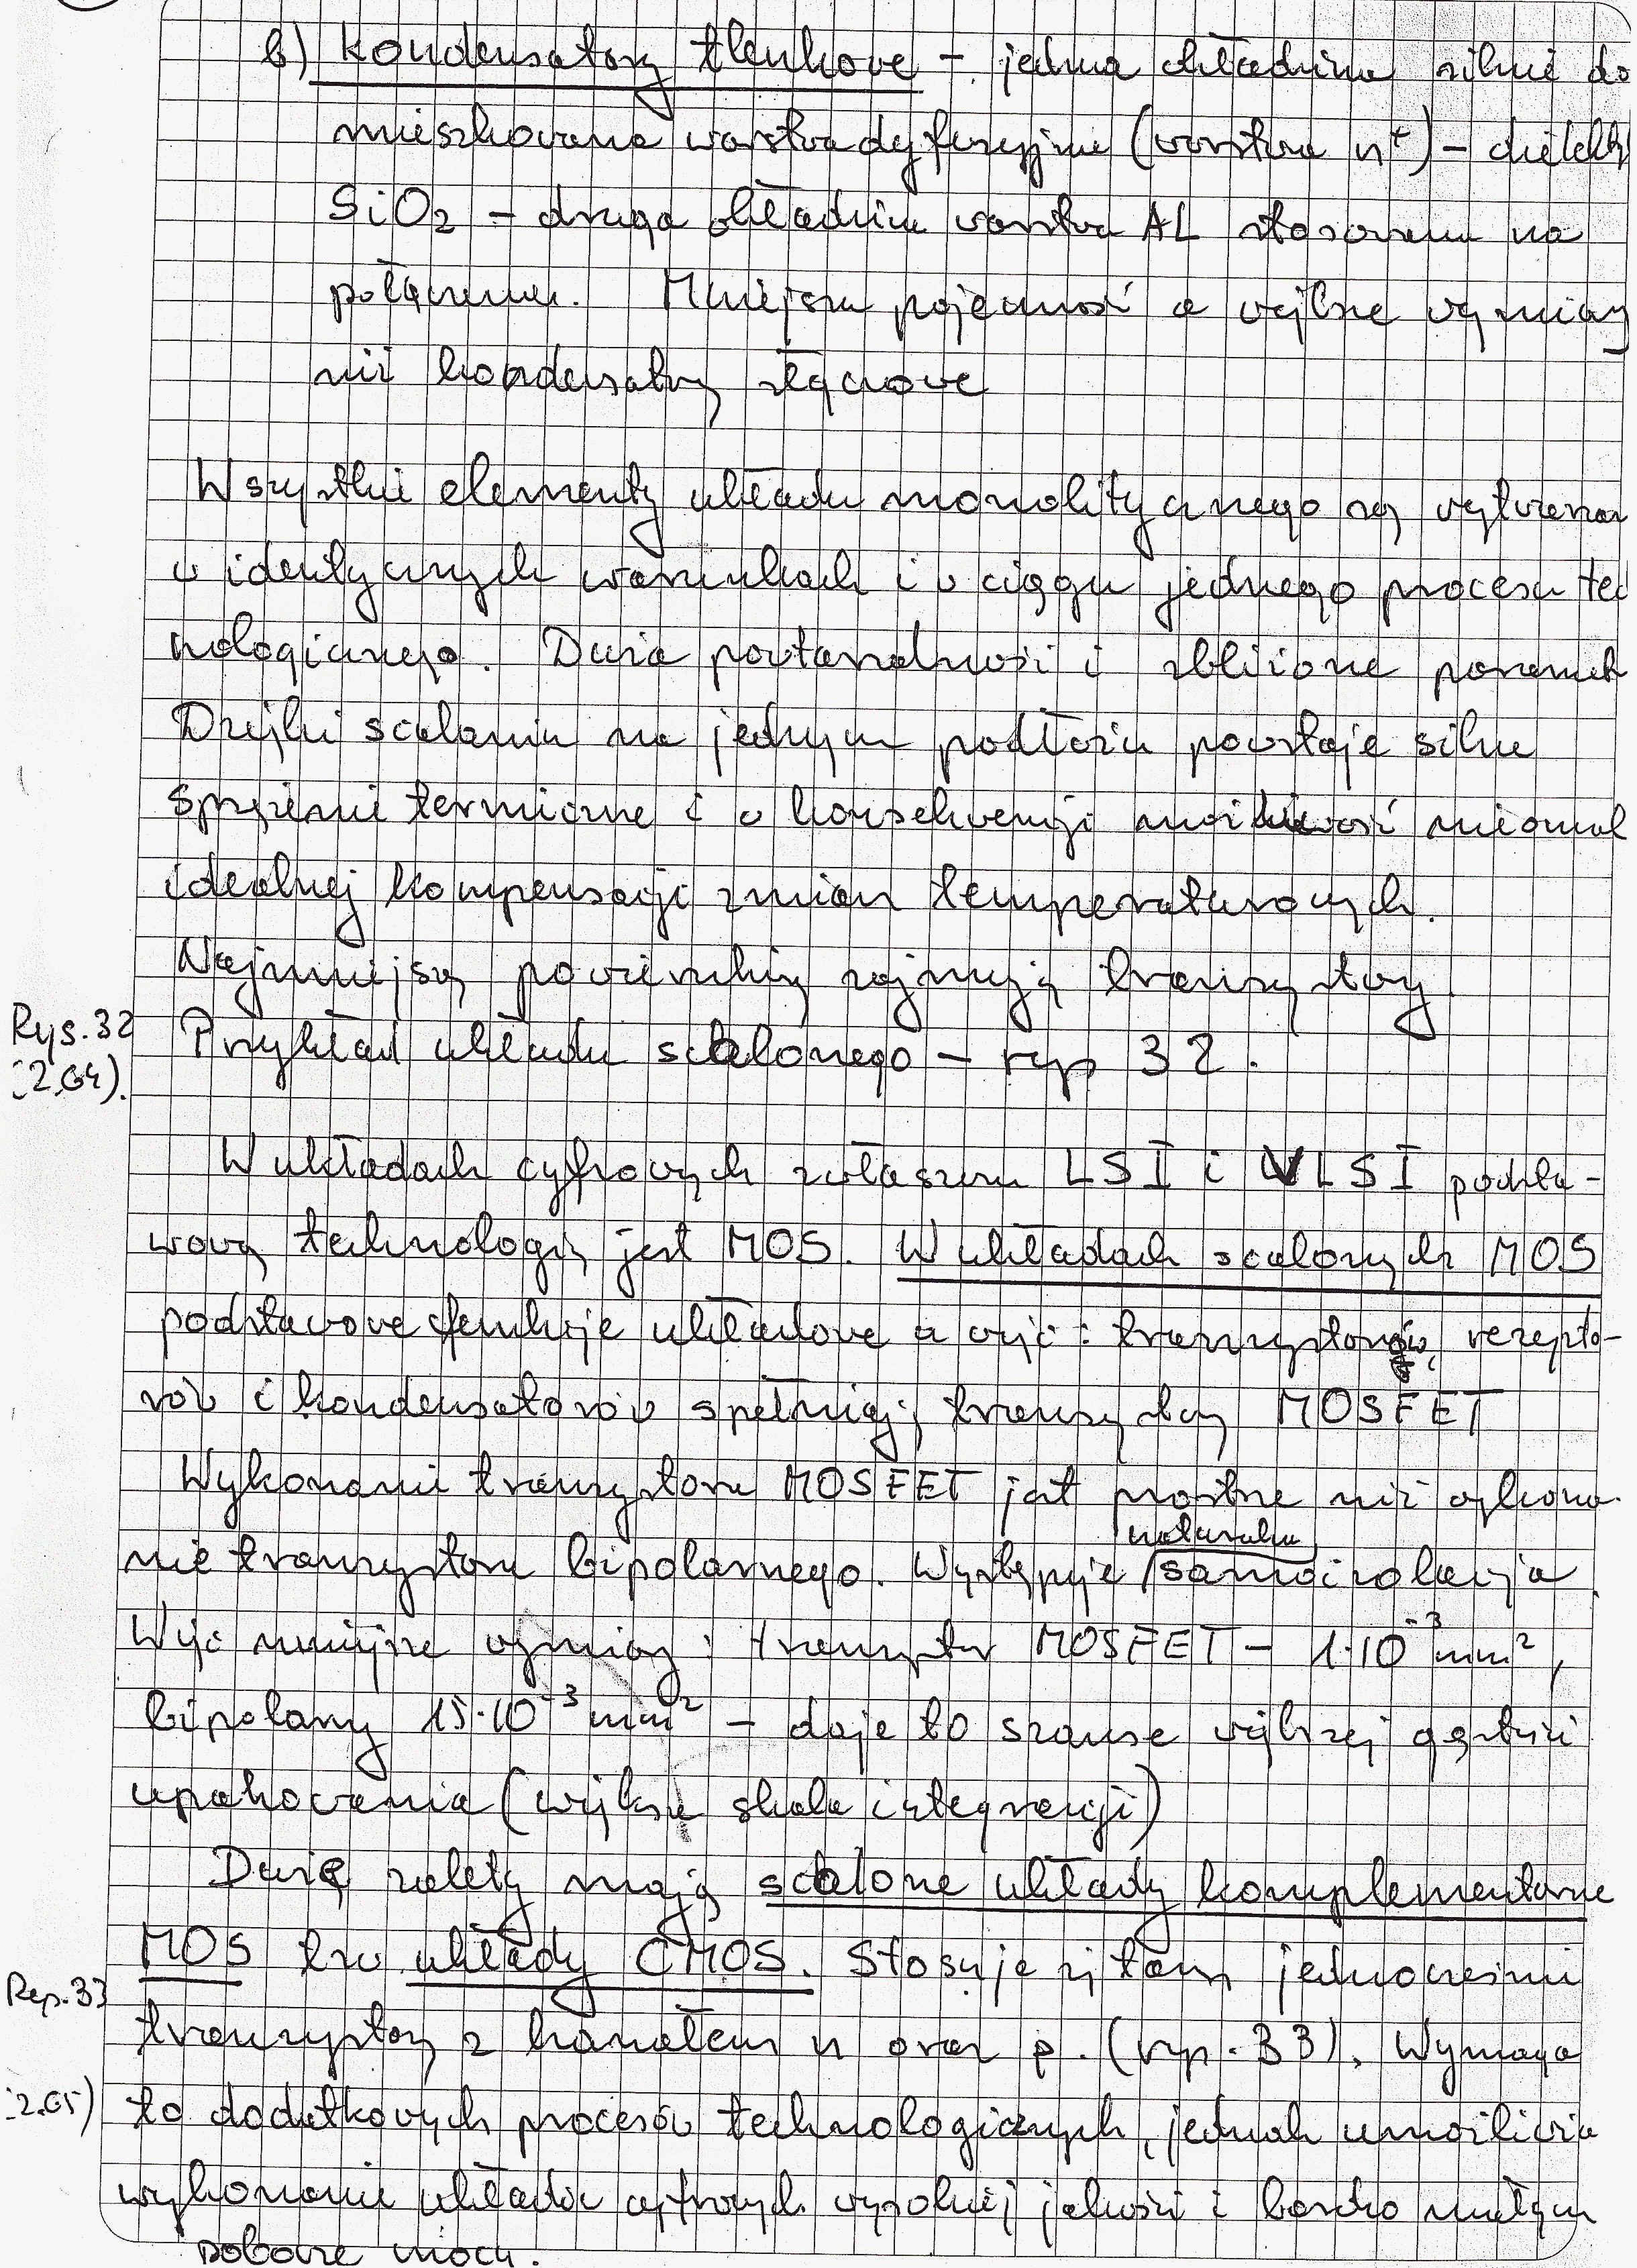 b) kondensatory tlenkowe – jedna okładzina silnie do
mieszkowana warstwa dyfuzyjna (warstwa n⁺) – dielektr
SiO₂ – druga okładzina warstwa AL stosowana na
połączenia. Mniejsza pojemność a większe wymiary
niż kondensatory złączowe
Wszystkie elementy układu monolitycznego są wytwarzane
w identycznych warunkach i w ciągu jednego procesu tec
nologicznego. Duża powtarzalność i zbliżone parametr
Dzięki scalaniu na jednym podłożu powstaje silne
sprzężenie termiczne i w konsekwencji możliwość niemal
idealnej kompensacji zmian temperaturowych.
Najmniejszą powierzchnię zajmują tranzystory.
Rys. 32
(2.64).
Przykład układu scalonego – rys 32.
W układach cyfrowych zwłaszcza LSI i VLSI podsta-
wową technologią jest MOS. W układach scalonych MOS
podstawowe funkcje układowe a więc: tranzystorów, rezysto-
rów i kondensatorów spełniają tranzystory MOSFET
Wykonanie tranzystora MOSFET jest prostsze niż wykona-
naturalna
nie tranzystora bipolarnego. Występuje samoizolacja.
Więc mniejsze wymiary: tranzystor MOSFET – 1·10⁻³ mm²,
bipolarny 15·10⁻³ mm² – daje to szanse większej gęstości
upakowania (większa skala integracji)
Duże zalety mają scalone układy komplementarne
MOS tzw układy CMOS. Stosuje się tam jednocześnie
Rys. 33
tranzystory z kanałem n oraz p. (rys. 33). Wymaga
2.65)
to dodatkowych procesów technologicznych, jednak umożliwia
wykonanie układów cyfrowych wysokiej jakości i bardzo małym
poborze mocy.